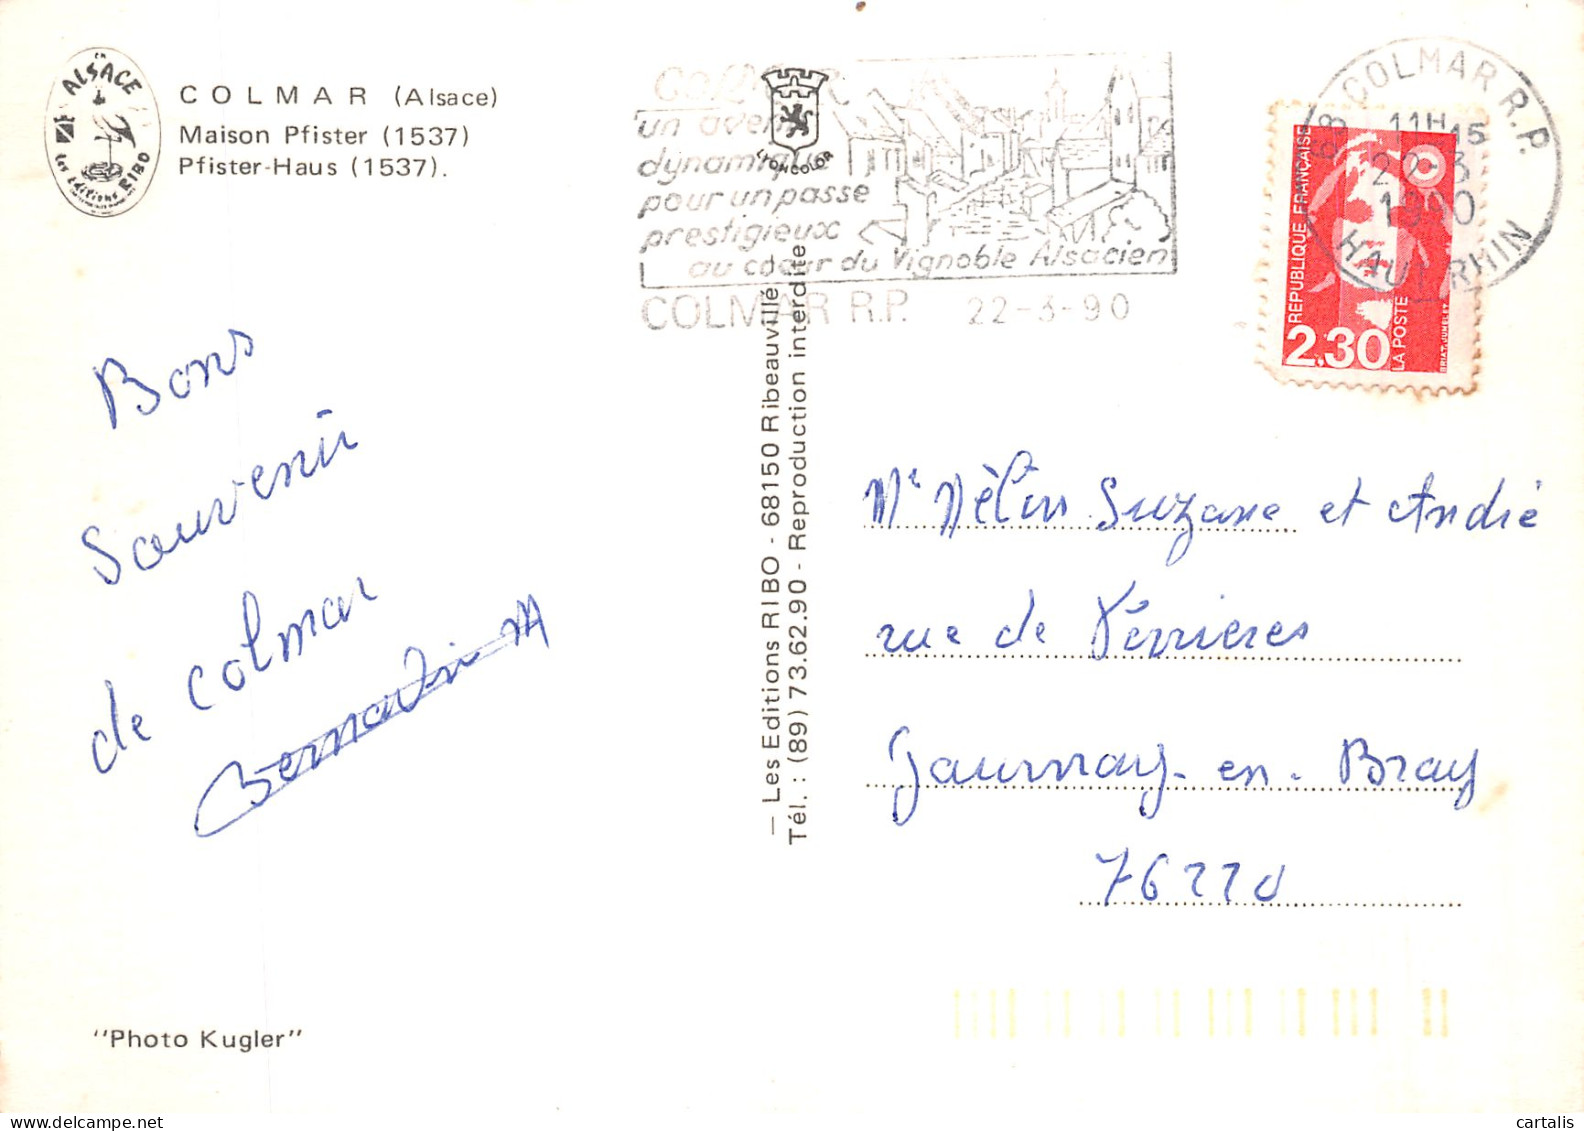 en
ALSACE
Les éditions RIBO
COLMAR (Alsace)
Maison Pfister (1537)
Pfister-Haus (1537).
Colmar
un avenir
dynamique
pour un passe
prestigieux
au coeur du Vignoble Alsacien
COLMAR R.P. 22-3-90
LYONCOLOR
68 COLMAR R.P.
11H 15
22-3
1990
HAUT RHIN
REPUBLIQUE FRANÇAISE
2,30
LA POSTE
BRIAT-JUMELET
Bons
Souvenir
de Colmar
Bernadin M
— Les Editions RIBO - 68150 Ribeauvillé —
Tél. : (89) 73.62.90 - Reproduction interdite
Mr Nèlin Suzane et André
rue de Vérrieres
Gaurnay-en-Bray
76220
"Photo Kugler"
cartalis